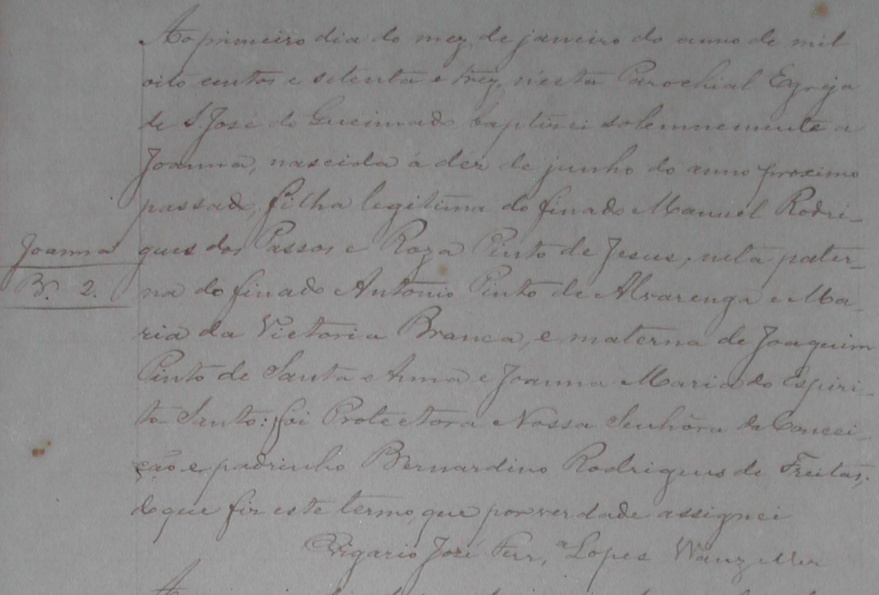 Ao primeiro dia do mez de janeiro do anno de mil
oito centos e setenta e trez, n'esta Parochial Egreja
de S. José do Queimado baptisei solemnemente a
Joanna, nascida a dez de junho do anno proximo
passado, filha legitima do finado Manuel Rodri-
gues dos Passos e Roza Pinto de Jesus, neta pater-
Joanna
B. 2.
na do finado Antonio Pinto de Alvarenga e Ma-
ria da Victoria Branca, e materna de Joaquim
Pinto de Santa Anna e Joanna Maria do Espiri-
to Santo: foi Protectora Nossa Senhora da Concei-
ção e padrinho Bernardino Rodrigues de Freitas,
do que fiz este termo, que por verdade assignei
Vigario José Ferr.ª Lopes Wanzeller